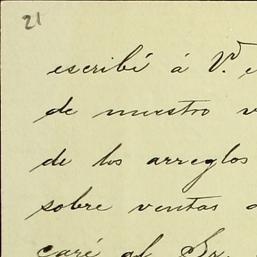 21
escribé á V.
de nuestro
de los arreglos
sobre ventas
caré al Sr.